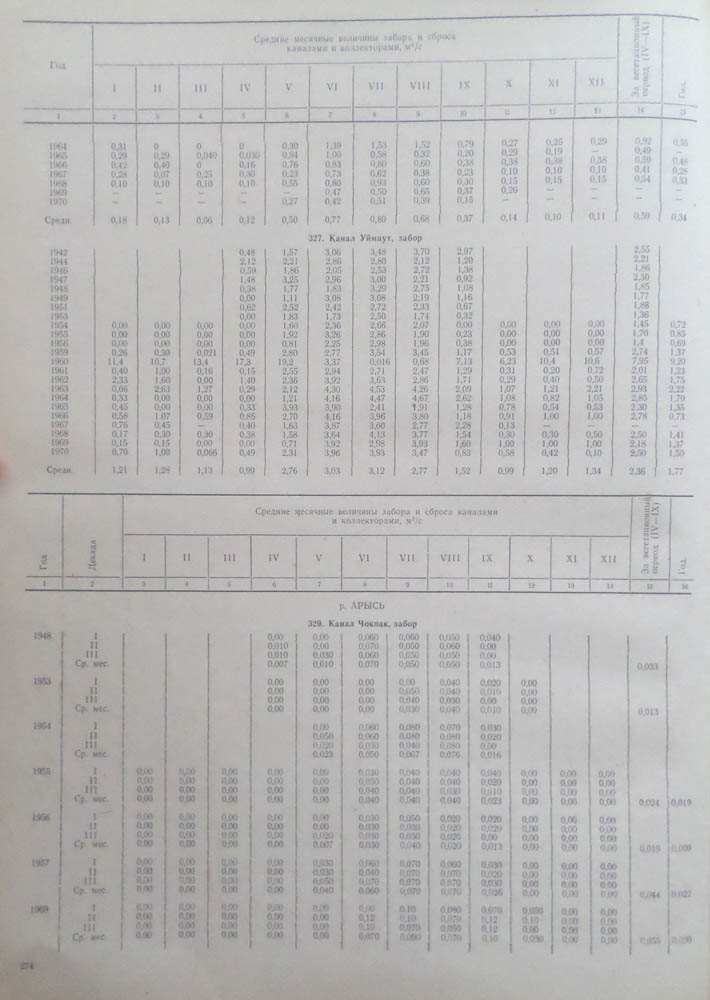 Год
Средние месячные величины забора и сброса
каналами и коллекторами, м³/с
За вегетационный период (IV—IX)
Год.
I II III IV V VI VII VIII IX X XI XII
1 2 3 4 5 6 7 8 9 10 11 12 13 14 15
1964 0,31 0 0 0 0,30 1,39 1,53 1,52 0,79 0,27 0,25 0,29 0,92 0,55
1965 0,29 0,29 0,040 0,030 0,84 1,00 0,58 0,32 0,20 0,29 0,19 — 0,49 —
1966 0,42 0,40 0 0,16 0,76 0,83 0,80 0,60 0,38 0,38 0,38 0,38 0,59 0,48
1967 0,28 0,07 0,25 0,30 0,23 0,73 0,62 0,38 0,23 0,10 0,10 0,10 0,41 0,28
1968 0,10 0,10 0,10 0,10 0,55 0,80 0,93 0,60 0,30 0,15 0,15 0,15 0,54 0,33
1969 — — — — — 0,47 0,50 0,65 0,37 0,26 — — — —
1970 — — — — 0,27 0,42 0,51 0,39 0,15 — — — — —
Средн. 0,18 0,13 0,06 0,12 0,50 0,77 0,80 0,68 0,37 0,14 0,10 0,11 0,59 0,34
327. Канал Уймаут, забор
1942 0,48 1,57 3,06 3,48 3,70 2,97 2,55
1944 2,12 2,21 2,86 2,80 2,12 1,20 2,21
1946 0,59 1,86 2,05 2,53 2,72 1,38 1,86
1947 1,48 3,25 2,96 3,00 2,21 0,92 2,30
1948 0,38 1,77 1,83 3,29 2,75 1,08 1,85
1949 0,00 1,11 3,08 3,08 2,19 1,16 1,77
1951 0,62 2,52 2,42 2,72 2,33 0,67 1,88
1953 0,00 1,83 1,73 2,50 1,74 0,32 1,36
1954 0,00 0,00 0,00 0,00 1,60 2,36 2,66 2,07 0,00 0,00 0,00 0,00 1,45 0,72
1955 0,00 0,00 0,00 0,00 1,92 3,26 2,86 1,90 0,23 0,00 0,00 0,00 1,70 0,85
1956 0,00 0,00 0,00 0,00 0,81 2,25 2,98 1,96 0,38 0,00 0,00 0,00 1,4 0,69
1959 0,26 0,30 0,021 0,49 2,80 2,77 3,54 3,45 1,17 0,53 0,51 0,57 2,74 1,37
1960 11,4 10,7 13,4 17,3 19,2 3,37 0,016 0,68 7,13 6,23 10,4 10,6 7,95 9,20
1961 0,40 1,00 0,16 0,15 2,55 2,94 2,71 2,47 1,29 0,31 0,20 0,72 2,01 1,23
1962 2,33 1,60 0,00 1,40 2,36 3,92 3,63 2,86 1,71 0,29 0,40 0,50 2,65 1,75
1963 0,66 2,63 1,27 0,29 2,12 4,30 4,53 4,26 2,09 1,07 1,21 2,21 2,93 2,22
1964 0,33 0,00 0,00 0,00 1,21 4,16 4,47 4,67 2,62 1,08 0,82 1,05 2,85 1,70
1965 0,45 0,00 0,00 0,33 3,93 3,90 2,41 1,91 1,28 0,78 0,54 0,53 2,30 1,35
1966 0,58 1,07 0,59 0,85 2,70 4,16 3,96 3,80 1,18 0,91 1,00 1,00 2,78 0,73
1967 0,76 0,45 — 0,40 1,63 3,87 3,60 2,77 2,28 0,13 — — — —
1968 0,17 0,30 0,30 0,38 1,58 3,64 4,13 3,77 1,54 0,30 0,30 0,50 2,50 1,41
1969 0,15 0,15 0,00 0,00 0,71 3,92 2,98 3,93 1,60 1,00 1,00 1,00 2,18 1,37
1970 0,70 1,00 0,066 0,49 2,31 3,96 3,93 3,47 0,83 0,58 0,42 0,10 2,50 1,50
Средн. 1,21 1,28 1,13 0,99 2,76 3,03 3,12 2,77 1,52 0,99 1,20 1,34 2,36 1,77
Год
Декада
Средние месячные величины забора и сброса каналами
и коллекторами, м³/с
За вегетационный период (IV—IX)
Год.
I II III IV V VI VII VIII IX X XI XII
1 2 3 4 5 6 7 8 9 10 11 12 13 14 15 16
р. АРЫСЬ
329. Канал Чокпак, забор
1948 I 0,00 0,00 0,060 0,060 0,050 0,040
II 0,010 0,00 0,070 0,050 0,060 0,00
III 0,010 0,030 0,060 0,050 0,050 0,00
Ср. мес. 0,007 0,010 0,070 0,050 0,050 0,013 0,033
1953 I 0,00 0,00 0,00 0,00 0,040 0,020 0,00
II 0,00 0,00 0,00 0,050 0,040 0,010 0,00
III 0,00 0,00 0,00 0,040 0,030 0,00 0,00
Ср. мес. 0,00 0,00 0,00 0,030 0,040 0,010 0,00 0,013
1954 I 0,00 0,060 0,080 0,070 0,030
II 0,050 0,060 0,080 0,080 0,020
III 0,020 0,030 0,040 0,080 0,00
Ср. мес. 0,023 0,050 0,067 0,076 0,016
1955 I 0,00 0,00 0,00 0,00 0,00 0,030 0,040 0,040 0,040 0,00 0,00 0,00
II 0,00 0,00 0,00 0,00 0,00 0,050 0,040 0,040 0,020 0,00 0,00 0,00
III 0,00 0,00 0,00 0,00 0,00 0,040 0,040 0,030 0,010 0,00 0,00 0,00
Ср. мес. 0,00 0,00 0,00 0,00 0,00 0,040 0,040 0,040 0,023 0,00 0,00 0,00 0,024 0,019
1956 I 0,00 0,00 0,00 0,00 0,00 0,030 0,050 0,020 0,020 0,00 0,00 0,00
II 0,00 0,00 0,00 0,00 0,00 0,030 0,030 0,020 0,020 0,00 0,00 0,00
III 0,00 0,00 0,00 0,00 0,020 0,030 0,030 0,020 0,00 0,00 0,00 0,00
Ср. мес. 0,00 0,00 0,00 0,00 0,007 0,030 0,040 0,020 0,013 0,00 0,00 0,00 0,019 0,009
1957 I 0,00 0,00 0,00 0,00 0,030 0,060 0,070 0,060 0,030 0,00 0,00 0,00
II 0,00 0,00 0,00 0,00 0,030 0,040 0,070 0,070 0,020 0,00 0,00 0,00
III 0,00 0,00 0,00 0,00 0,050 0,070 0,070 0,070 0,030 0,00 0,00 0,00
Ср. мес. 0,00 0,00 0,00 0,00 0,040 0,060 0,070 0,070 0,026 0,00 0,00 0,00 0,044 0,022
1969 I 0,00 0,00 0,00 0,00 0,00 0,00 0,10 0,080 0,070 0,050 0,00 0,00
II 0,00 0,00 0,00 0,00 0,00 0,12 0,10 0,070 0,12 0,10 0,00 0,00
III 0,00 0,00 0,00 0,00 0,00 0,10 0,070 0,050 0,12 0,00 0,00 0,00
Ср. мес. 0,00 0,00 0,00 0,00 0,00 0,070 0,090 0,070 0,10 0,050 0,00 0,00 0,055
274